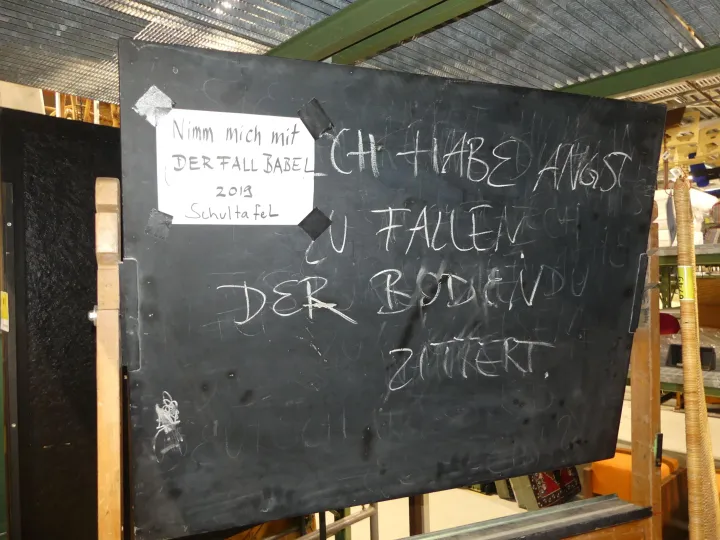 Nimm mich mit
DER FALL BABEL
2019
Schultafel
ICH HABE ANGST
ZU FALLEN.
DER BODEN
ZITTERT.